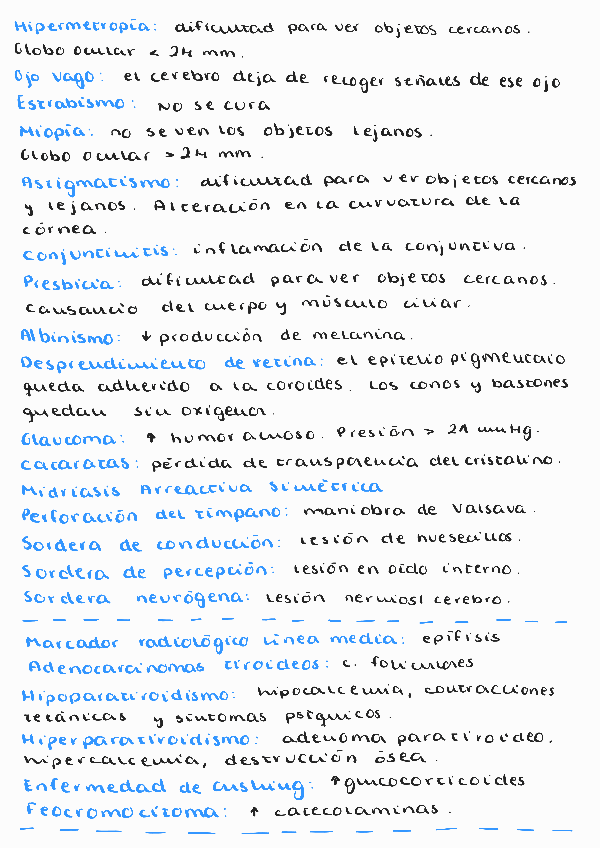 Hipermetropía: dificultad para ver objetos cercanos.
Globo ocular < 24 mm.
Ojo vago: el cerebro deja de recoger señales de ese ojo
Estrabismo: No se cura
Miopía: no se ven los objetos lejanos.
Globo ocular > 24 mm.
Astigmatismo: dificultad para ver objetos cercanos
y lejanos. Alteración en la curvatura de la
córnea.
Conjuntivitis: inflamación de la conjuntiva.
Presbicia: dificultad para ver objetos cercanos.
Causancio del cuerpo y músculo ciliar.
Albinismo: ↓ producción de melanina.
Desprendimiento de retina: el epitelio pigmentario
queda adherido a la coroides. Los conos y bastones
quedan sin oxígeno.
Glaucoma: ↑ humor acuoso. Presión > 21 mmHg.
Cataratas: pérdida de transparencia del cristalino.
Midriasis Arreactiva Simétrica
Perforación del tímpano: maniobra de Valsava.
Sordera de conducción: Lesión de huesecillos.
Sordera de percepción: Lesión en oído interno.
Sordera neurógena: Lesión nervios/ cerebro.
Marcador radiológico línea media: epífisis
Adenocarcinomas tiroideos: c. foliculares
Hipoparatiroidismo: hipocalcemia, contracciones
tetánicas y síntomas psíquicos.
Hiperparatiroidismo: adenoma paratiroideo,
hipercalcemia, destrucción ósea.
Enfermedad de cushing: ↑ glucocorticoides
Feocromocitoma: ↑ catecolaminas.